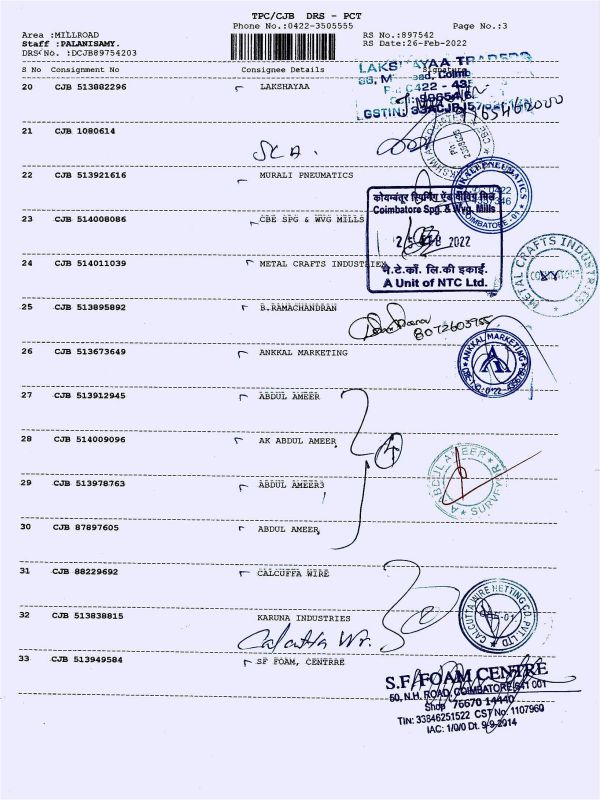 TPC/CJB DRS - PCT
Phone No.:0422-3505555 Page No.:3
Area :MILLROAD RS No.:897542
Staff :PALANISAMY. RS Date:26-Feb-2022
DRS No. :DCJB89754203
S No Consignment No Consignee Details Signature
20 CJB 513882296 LAKSHAYAA
LAKSHAYAA TRADERS
21 CJB 1080614
SCA.
22 CJB 513921616 MURALI PNEUMATICS
PNEUMATICS
COIMBATORE
23 CJB 514008086 CBE SPG & WVG MILLS
कोयम्बतूर स्पिनिंग ऐंड वीविंग मिल
Coimbatore Spg. & Wvg. Mills
2022
ने.टे.कॉ. लि.की इकाई.
A Unit of NTC Ltd.
24 CJB 514011039 METAL CRAFTS INDUSTRIES
METAL CRAFTS INDUSTRIES
25 CJB 513895892 B.RAMACHANDRAN
8072603955
26 CJB 513673649 ANKKAL MARKETING
ANKKAL MARKETING
A
27 CJB 513912945 ABDUL AMEER
28 CJB 514009096 AK ABDUL AMEER
4
29 CJB 513978763 ABDUL AMEER3
A ABDUL AMEER
SURVEYOR
30 CJB 87897605 ABDUL AMEER
31 CJB 88229692 CALCUFFA WIRE
CALCUTTA WIRE NETTING CO. PVT. LTD
32 CJB 513838815 KARUNA INDUSTRIES
Calcutta Wr.
33 CJB 513949584 SF FOAM, CENTRRE
S.F. FOAM CENTRE
50, N.H. ROAD, COIMBATORE 641 001
Shop 76670 14440
TIN: 33846251522 CST No. 1107960
IAC: 1/0/0 Dt. 9-9-2014